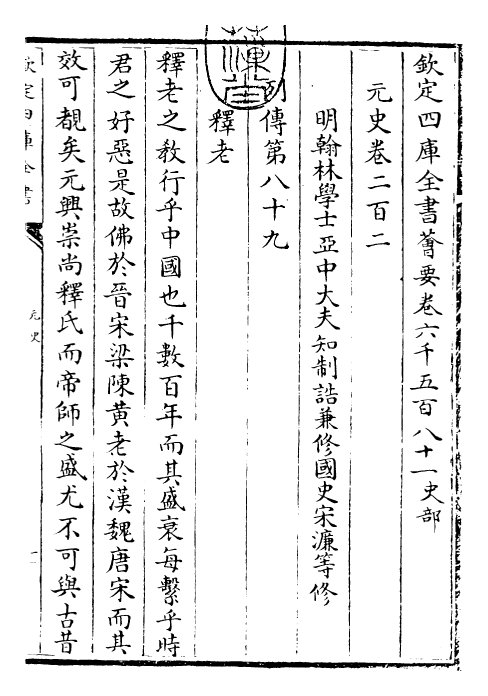 欽定四庫全書薈要卷六千五百八十一史部
元史卷二百二
明翰林學士亞中大夫知制誥兼修國史宋濂等修
列傳第八十九
釋老
釋老之教行乎中國也千數百年而其盛衰每繫乎時
君之好惡是故佛於晉宋梁陳黃老於漢魏唐宋而其
效可覩矣元興崇尚釋氏而帝師之盛尤不可與古昔
欽定四庫全書
元史
一